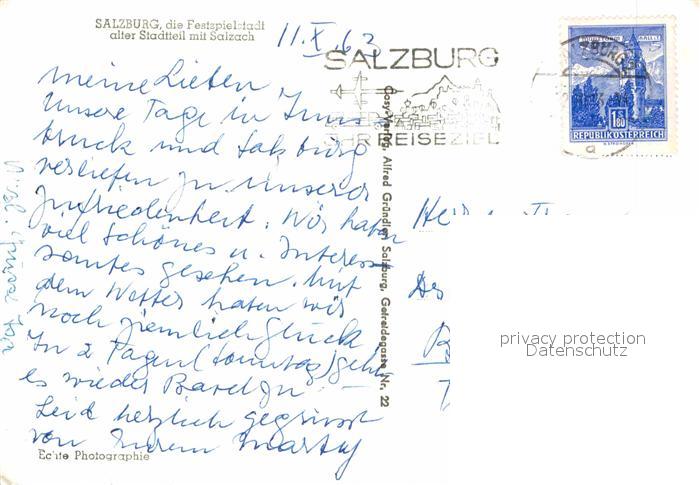 SALZBURG, die Festspielstadt
alter Stadtteil mit Salzach
11.X.63
SALZBURG
IHR REISEZIEL
S 1.80
REPUBLIK ÖSTERREICH
meine Lieben
Unsere Tage in Inns
bruck und Salzburg
verliefen zu unserer
Zufriedenheit. Wir haben
viel Schönes u. Interes-
santes gesehen. Mit
dem Wetter haben wir
noch ziemlich Glück
In 2 Tagen (Sonntag) geht
es wieder Basel zu.
Seid herzlich gegrüsst
von Eurem Marty
Viele Grüsse
Cosy-Verlag, Alfred Gründler, Salzburg, Getreidegasse Nr. 22
privacy protection
Datenschutz
Echte Photographie